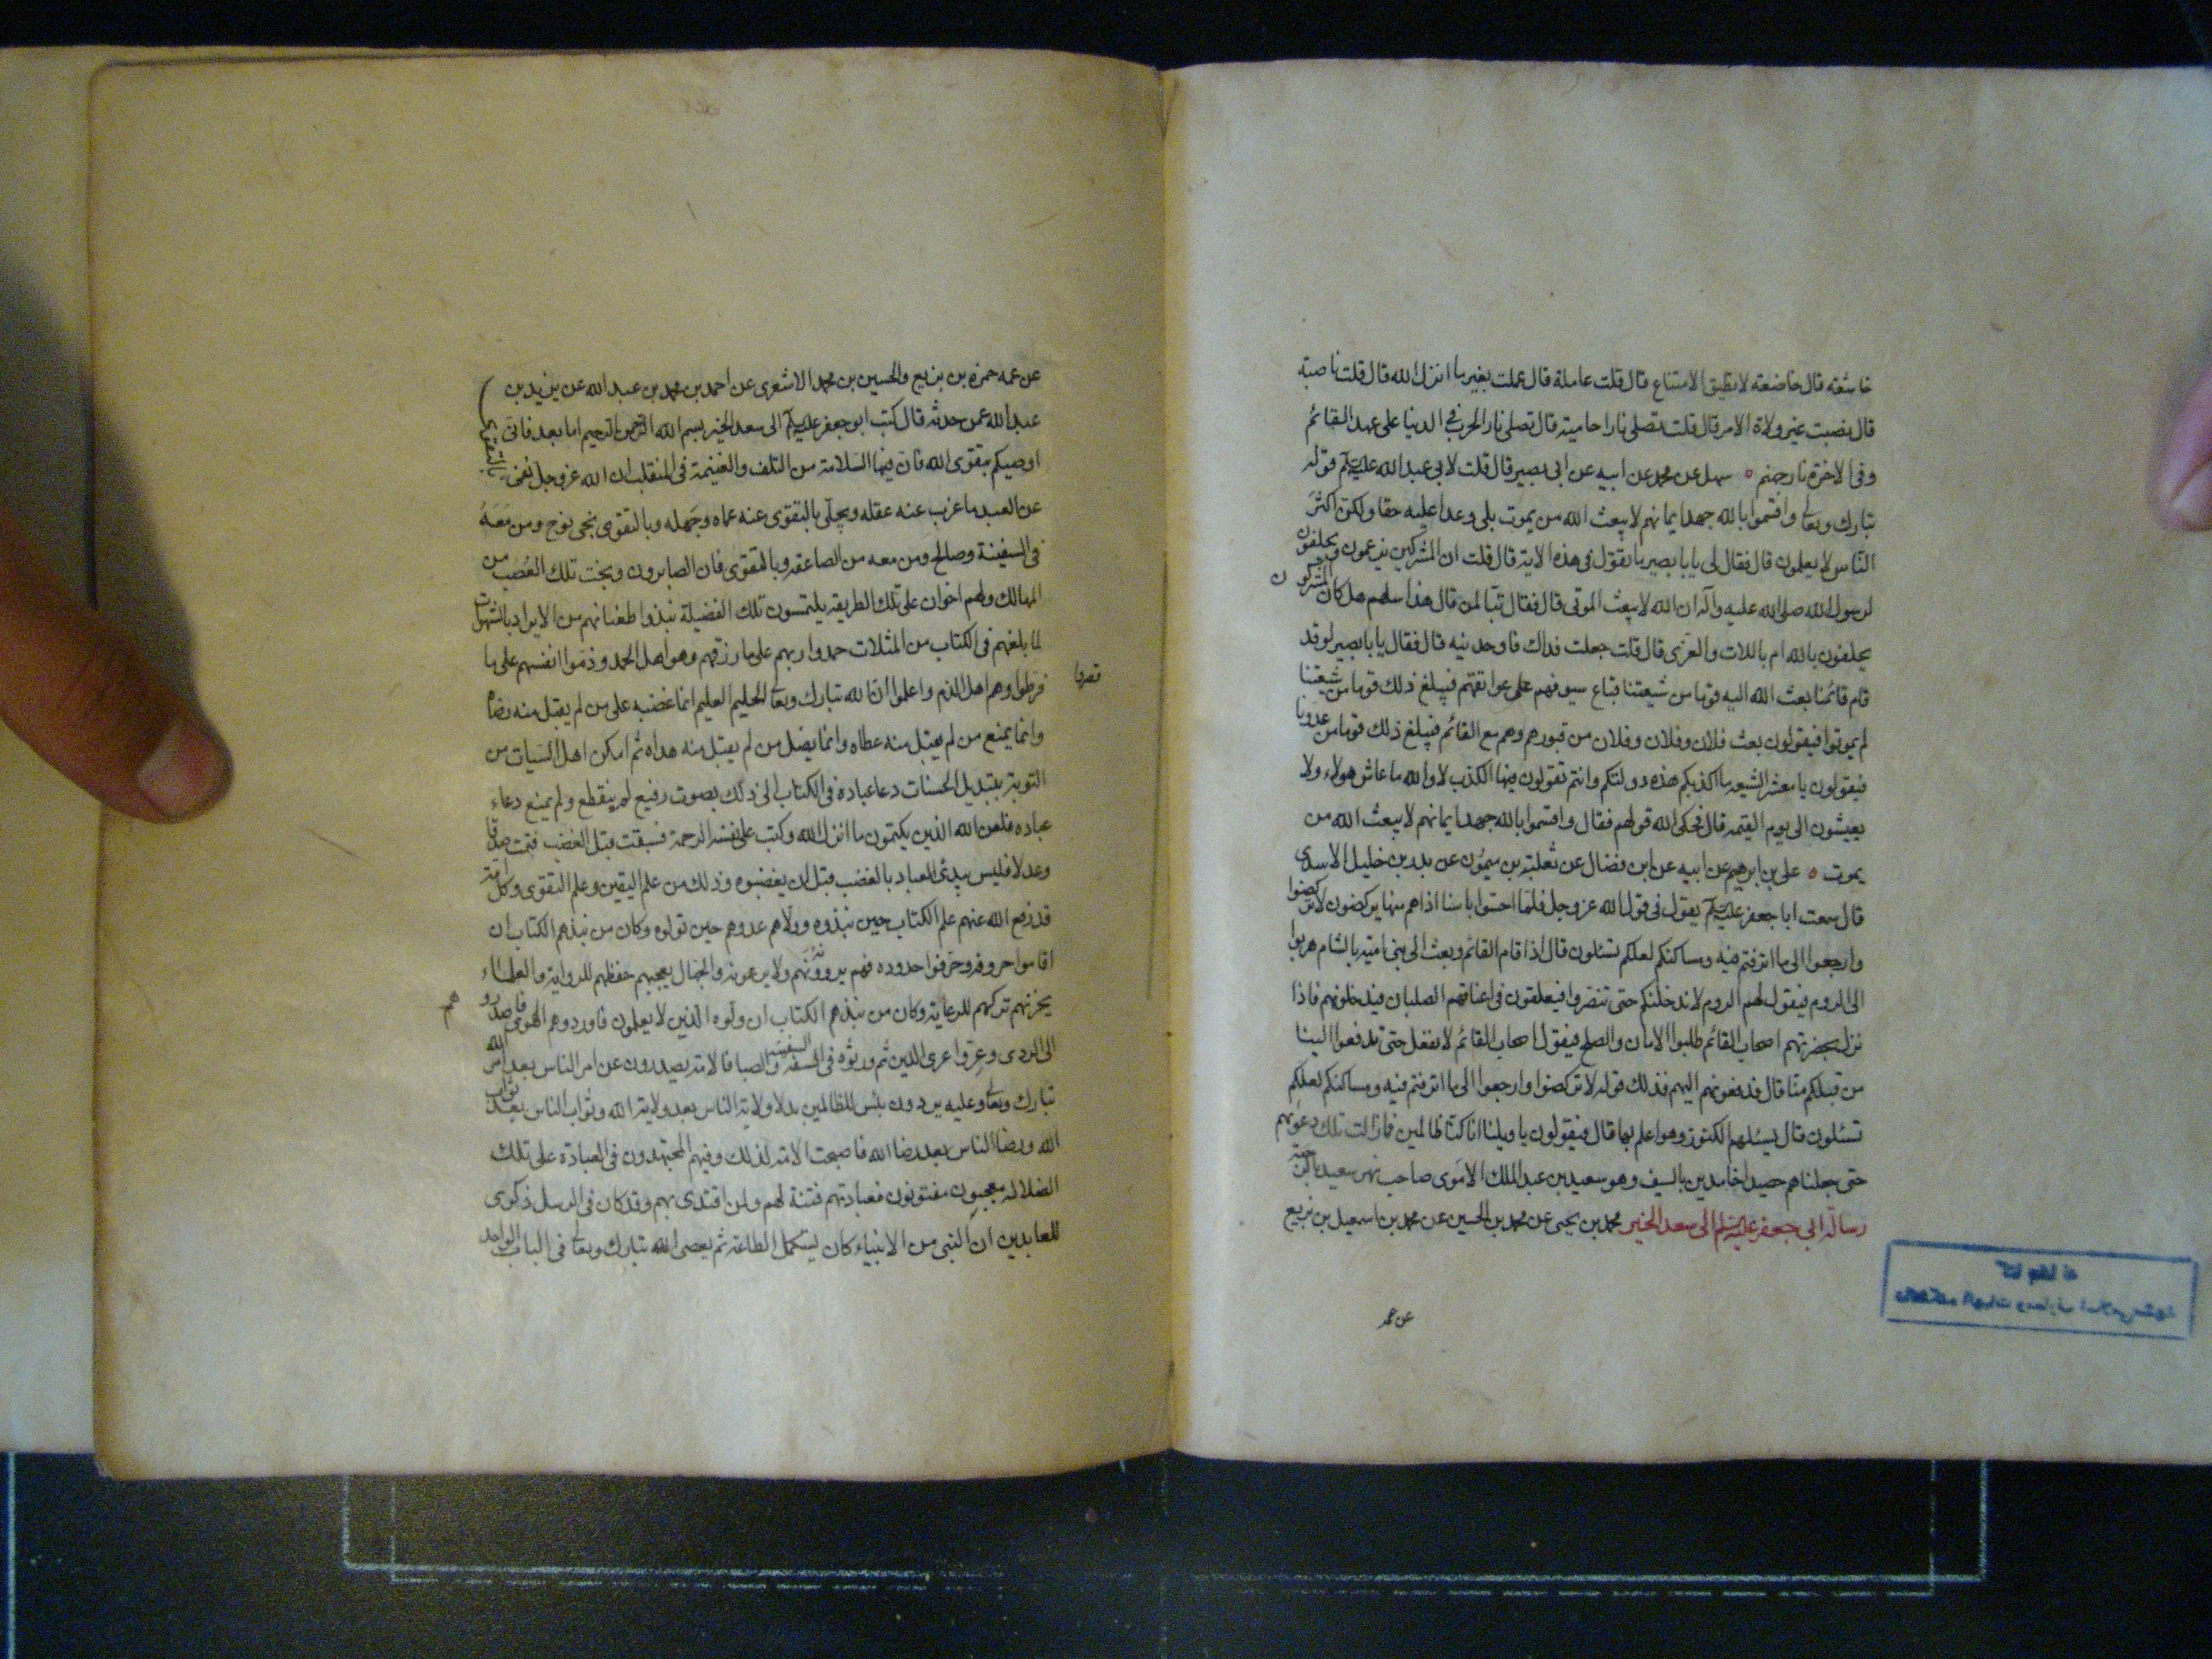 خاشعة قال خاضعة لا تطيق الامتناع قال قلت عاملة قال عملت بغير ما انزل الله قال قلت ناصبة
قال نصبت غير ولاة الامر قال قلت تصلى نارا حامية قال تصلى نار الحرب فى الدنيا على عهد القائم
وفى الاخرة نار جهنم ه سهل عن محمد عن ابيه عن ابى بصير قال قلت لابى عبد الله عليه السلم قوله
تبارك وتعالى واقسموا بالله جهد ايمانهم لا يبعث الله من يموت بلى وعدا عليه حقا ولكن اكثر
الناس لا يعلمون قال فقال لى يا با بصير ما تقول فى هذه الاية قال قلت ان المشركين يزعمون ويحلفون
لرسول الله صلى الله عليه واله ان الله لا يبعث الموتى قال فقال تبا لمن قال هذا سلهم هل كان المشركون
يحلفون بالله ام باللات والعزى قال قلت جعلت فداك فاوجدنيه قال فقال يا با بصير لو قد
قام قائمنا بعث الله اليه قوما من شيعتنا قباع سيوفهم على عواتقهم فيبلغ ذلك قوما من شيعتنا
لم يموتوا فيقولون بعث فلان وفلان وفلان من قبورهم وهم مع القائم فيبلغ ذلك قوما من عدونا
فيقولون يا معشر الشيعة ما اكذبكم هذه دولتكم وانتم تقولون فيها الكذب لا والله ما عاش هولاء ولا
يعيشون الى يوم القيمة قال فحكى الله قولهم فقال واقسموا بالله جهد ايمانهم لا يبعث الله من
يموت ه على بن ابرهيم عن ابيه عن ابن فضال عن ثعلبة بن ميمون عن بدر بن خليل الاسدى
قال سمعت ابا جعفر عليه السلم يقول فى قول الله عز وجل فلما احسوا باسنا اذا هم منها يركضون لا تركضوا
وارجعوا الى ما اترفتم فيه ومساكنكم لعلكم تسئلون قال اذا قام القائم وبعث الى بنى امية بالشام هربوا
الى الروم فيقول لهم الروم لا ندخلنكم حتى تتنصروا فيعلقون فى اعناقهم الصلبان فيدخلونهم فاذا
نزل بحضرتهم اصحاب القائم طلبوا الامان والصلح فيقول اصحاب القائم لا نفعل حتى تدفعوا الينا
من قبلكم منا قال فيدفعونهم اليهم فذلك قوله لا تركضوا وارجعوا الى ما اترفتم فيه ومساكنكم لعلكم
تسئلون قال يسئلهم الكنوز وهو اعلم بها قال فيقولون يا ويلنا انا كنا ظالمين فما زالت تلك دعويهم
حتى جعلناهم حصيدا خامدين بالسيف وهو سعيد بن عبد الملك الاموى صاحب نهر سعيد بالرحبة
رسالة ابى جعفر عليه السلم الى سعد الخير محمد بن يحيى عن محمد بن الحسين عن محمد بن اسمعيل بن بزيع
عن عمه
عن عمه حمزة بن بزيع والحسين بن محمد الاشعرى عن احمد بن محمد بن عبد الله عن يزيد بن
عبد الله عمن حدثه قال كتب ابو جعفر عليه السلم الى سعد الخير بسم الله الرحمن الرحيم اما بعد فانى
اوصيكم بتقوى الله فان فيها السلامة من التلف والغنيمة فى المنقلب ان الله عز وجل نفى
عن العبد ما عزب عنه عقله ويجلى بالتقوى عنه عماه وجهله وبالتقوى نجى نوح ومن معه
فى السفينة وصالح ومن معه من الصاعقة وبالتقوى فان الصابرون ونجت تلك العصب من
المهالك ولهم اخوان على تلك الطريقة يلتمسون تلك الفضيلة نبذوا طغيانهم من الايراد بالشهوات
لما بلغهم فى الكتاب من المثلات حمدوا ربهم على ما رزقهم وهو اهل الحمد وذموا انفسهم على ما
فرطوا وهم اهل الذم واعلموا ان الله تبارك وتعالى الحليم العليم انما غضبه على من لم يقبل منه رضاه
وانما يمنع من لم يقبل منه عطاه وانما يضل من لم يقبل منه هداه ثم امكن اهل السيات من
التوبة بتبديل الحسنات دعا عباده فى الكتاب الى ذلك بصوت رفيع لم ينقطع ولم يمنع دعاء
عباده فلعن الله الذين يكتمون ما انزل الله وكتب على نفسه الرحمة فسبقت قبل الغضب فتمت صدقا
وعدلا فليس يبدئ العباد بالغضب قبل ان يغضبوه وذلك من علم اليقين وعلم التقوى وكل امة
قد رفع الله عنهم علم الكتاب حين نبذوه وولاهم عدوهم حين تولوه وكان من نبذهم الكتاب ان
اقاموا حروفه وحرفوا حدوده فهم يروونه ولا يرعونه والجهال يعجبهم حفظهم للرواية والعلماء
يحزنهم تركهم للرعاية وكان من نبذهم الكتاب ان ولوه الذين لا يعلمون فاوردوهم الهوى واصدروهم
الى الردى وغيروا عرى الدين ثم ورثوه فى السفه والصبا فالامة يصدرون عن امر الناس بعد امر الله
تبارك وتعالى وعليه يردون بئس للظالمين بدلا ولاية الناس بعد ولاية الله وثواب الناس بعد ثواب
الله ورضا الناس بعد رضا الله فاصبحت الامة لذلك وفيهم المجتهدون فى العبادة على تلك
الضلالة معجبون مفتونون فعبادتهم فتنة لهم ولمن اقتدى بهم وقد كان فى الرسل ذكرى
للعابدين ان النبى من الانبياء كان يستكمل الطاعة ثم يعصى الله تبارك وتعالى فى الباب الواحد